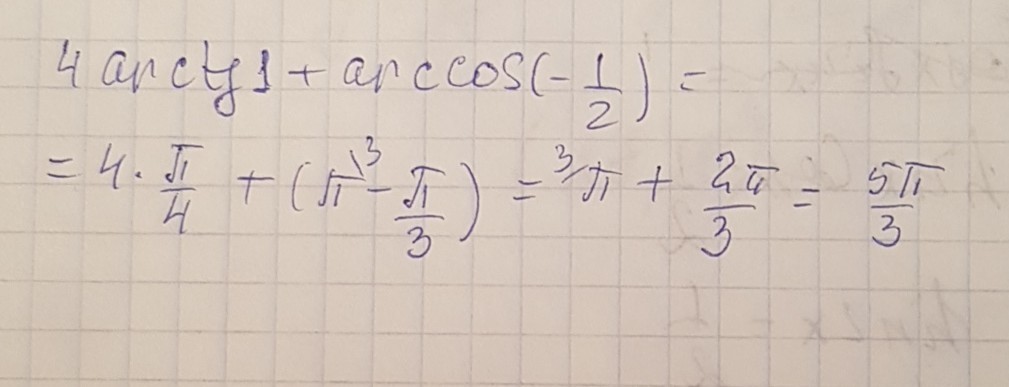 4 arctg1 + arccos(-1/2) =
= 4 · π/4 + (π\3 - π/3) = 3/π + 2π/3 = 5π/3